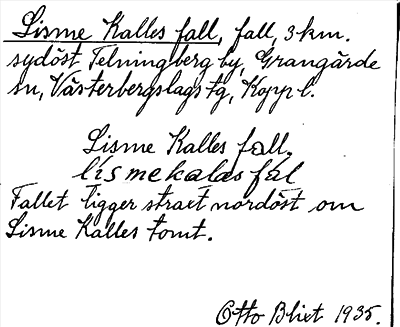 Lisme Kalles fall, fall, 3 km.
sydöst Telningberg by, Grangärde
sn, Västerbergslags tg, Koppl.
Lisme Kalles fall.
lismekalas fal
Fallet ligger strax nordöst om
Lisme Kalles tomt.
Otto Blixt 1935.